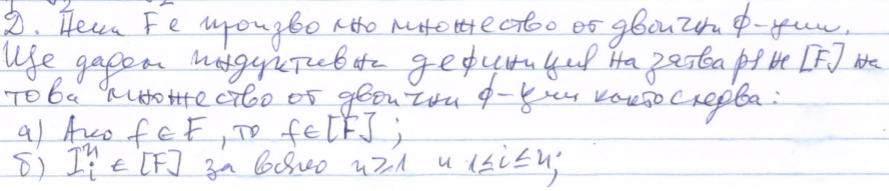 D. Нека F е произволно множество от двоични ф-ции.
Ще дадем индуктивна дефиниция на затваряне [F] на
това множество от двоични ф-ции както следва:
а) Ако f ∈ F, то f ∈ [F];
б) Iᵢⁿ ∈ [F] за всяко n≥1 и 1≤i≤n;